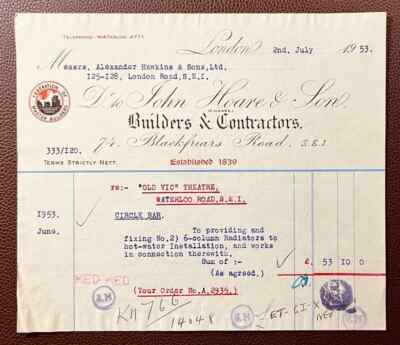 TELEPHONE: WATERLOO 4771.
London 2nd. July 1953.
Messrs. Alexander Hawkins & Sons, Ltd.
125-128, London Road, S.E.1.
Dr. to John Hoare & Son
Builders & Contractors.
74, Blackfriars Road, S.E.1
333/120.
TERMS STRICTLY NETT.
Established 1839
re:- "OLD VIC" THEATRE,
WATERLOO ROAD, S.E.1.
1953. CIRCLE BAR.
June. To providing and
fixing No.2) 6-column Radiators to
hot-water Installation, and works
in connection therewith.
Sum of :- £. 53 10 0
(As agreed.)
(Your Order No.A.2434.)